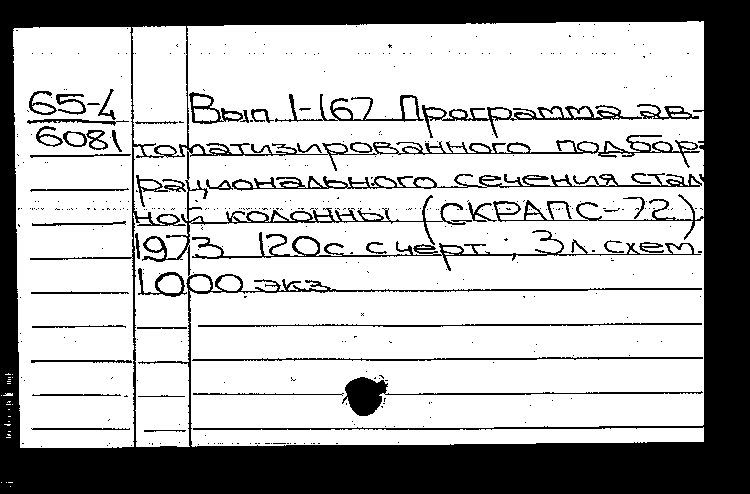 65-4
6081
Вып. 1-167 Программа ав-
томатизированного подбора
рационального сечения сталь
ной колонны. (СКРАПС-72).
1973 120с. с черт.; 3 л. схем.
1.000 экз.